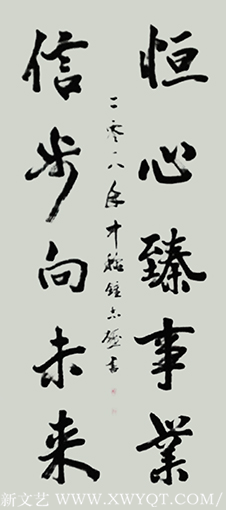 恒心臻事业
信步向未来
二零一八年
书
新文艺 WWW.XWYQT.COM/